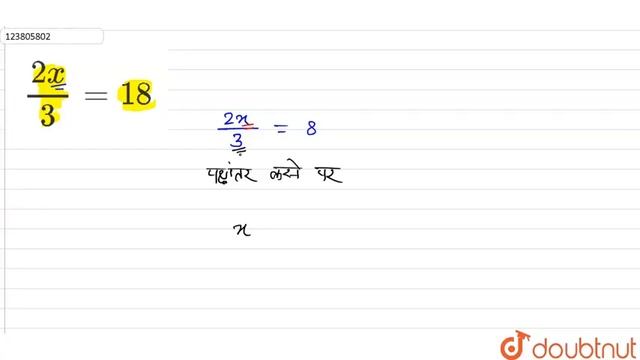 123805802
2x/3 = 18
2x/3 = 8
पक्षांतर करने पर
x
doubtnut